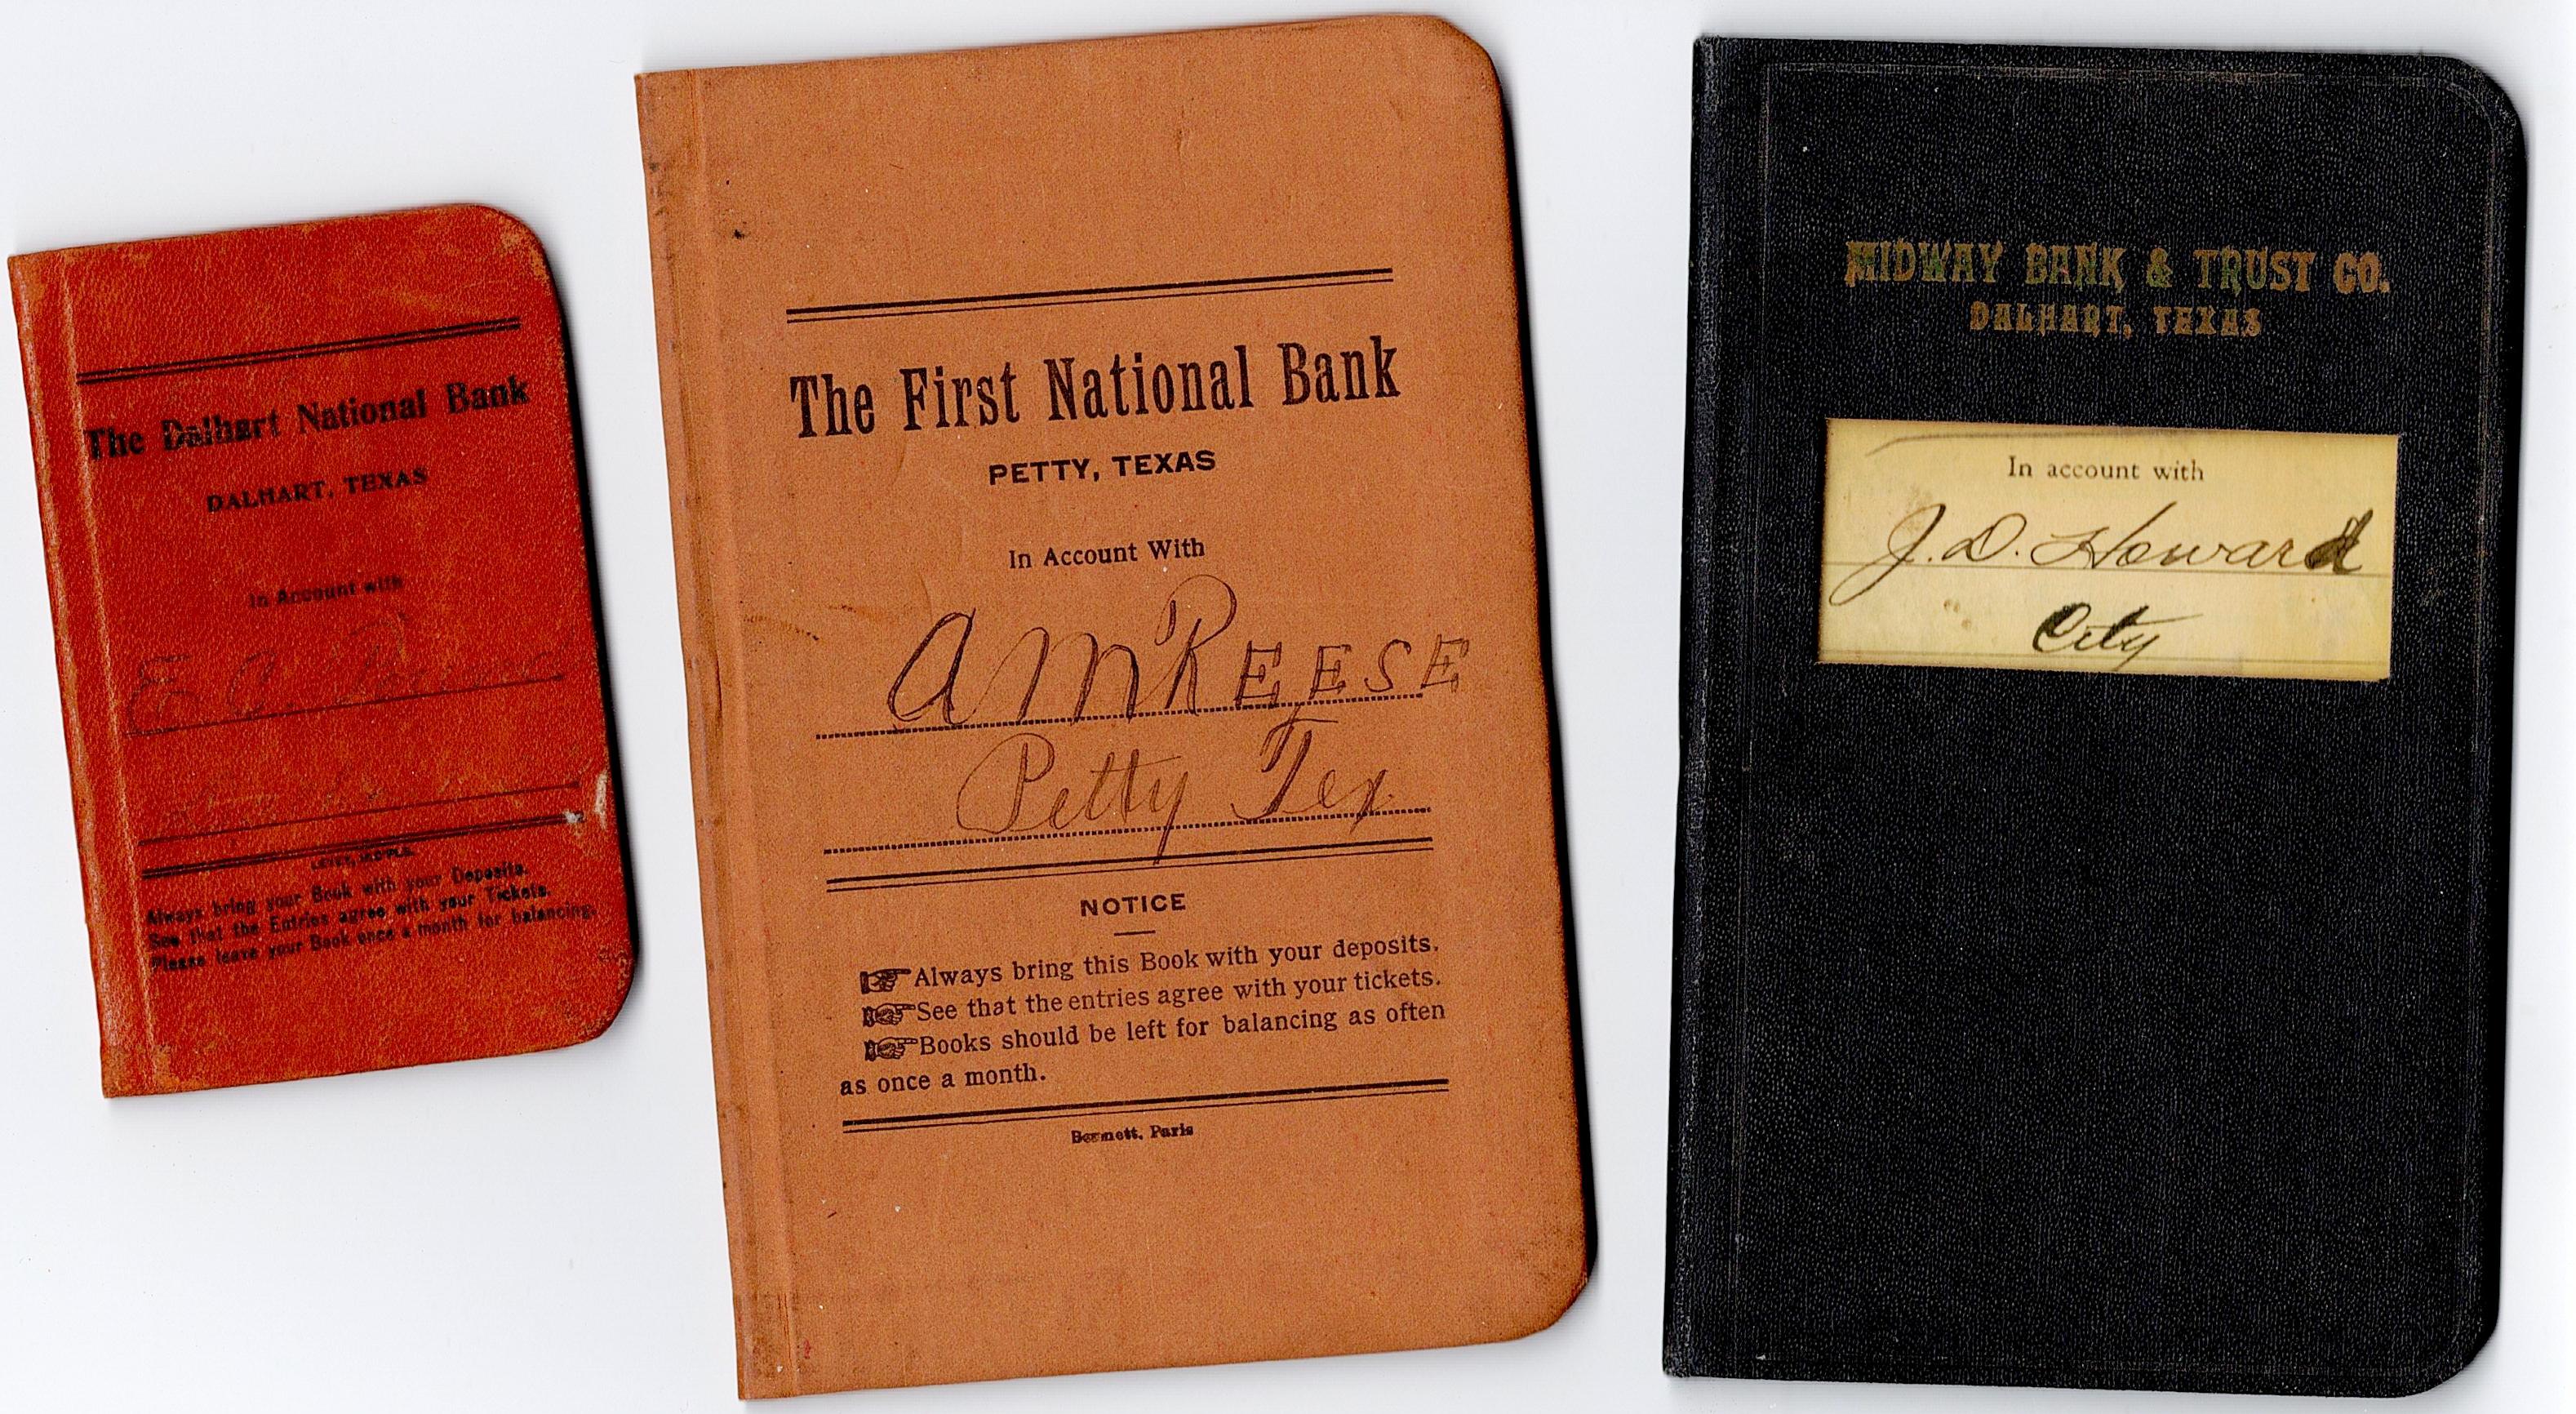 The Dalhart National Bank
DALHART, TEXAS
In Account with
E
Always bring your Book with your Deposits.
See that the Entries agree with your Tickets.
Please leave your Book once a month for balancing.
The First National Bank
PETTY, TEXAS
In Account With
A M REESE
Petty Tex
NOTICE
Always bring this Book with your deposits.
See that the entries agree with your tickets.
Books should be left for balancing as often
as once a month.
Bennett, Paris
MIDWAY BANK & TRUST CO.
DALHART, TEXAS
In account with
J. D. Howard
City